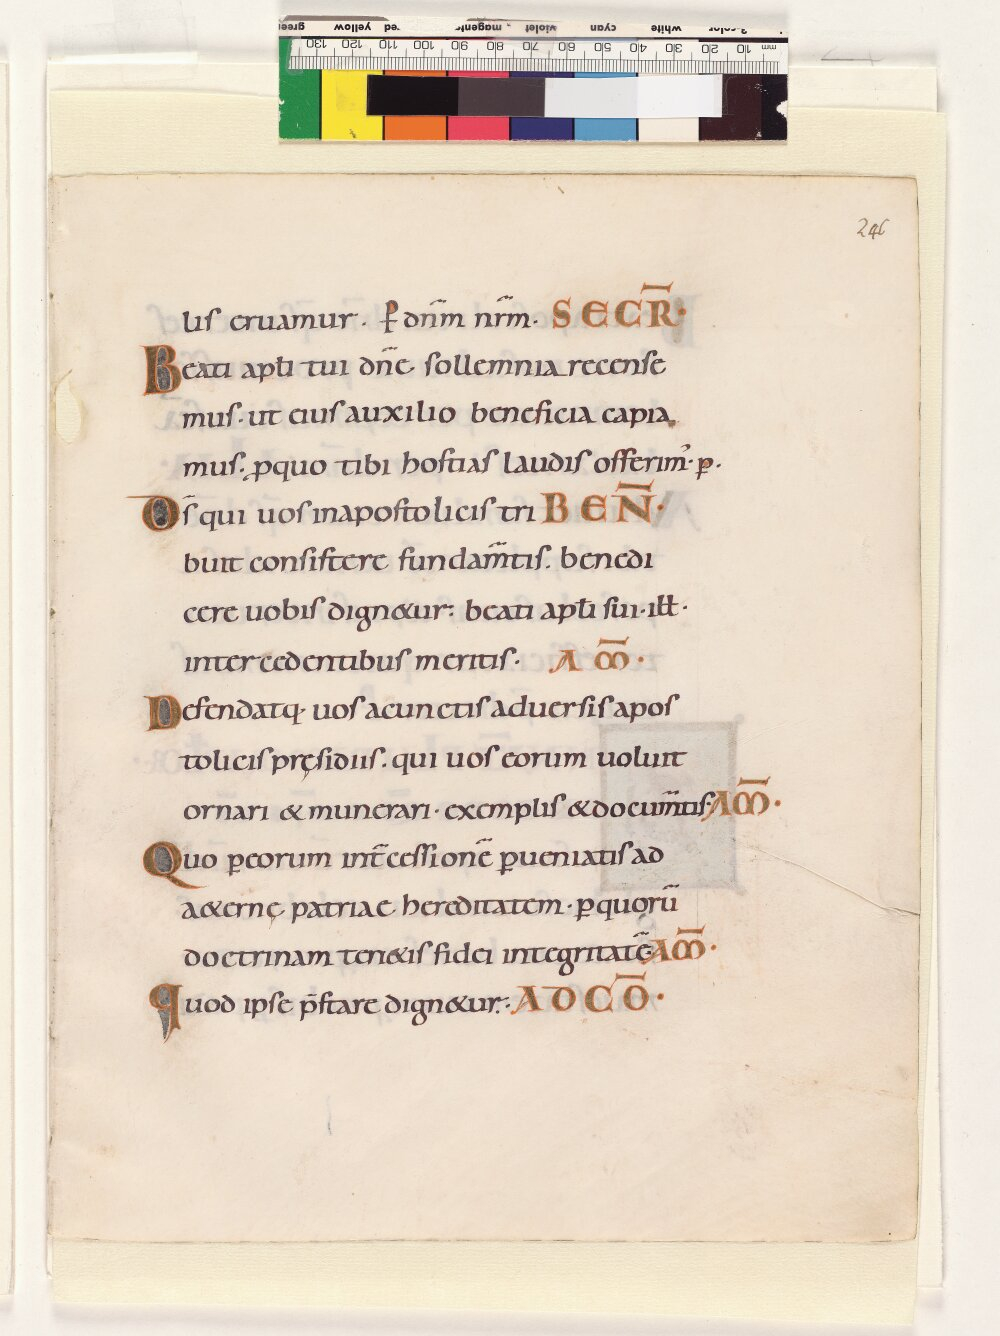 3-color white cyan violet magenta red yellow green
mm 10 20 30 40 50 60 70 80 90 100 110 120 130
246
lis eruamur. P̄ dñm nr̄m. SECR̄.
Beati apłi tui dñe sollemnia recense
mus. ut eius auxilio beneficia capia
mus. ꝓquo tibi hostias laudis offerim᾽. ꝑ.
Ds̄ qui uos inapostolicis tri BEN̄.
buit consistere fundam̄tis. benedi
cere uobis dign&ur. beati apłi sui. iłł.
intercedentibus meritis. AM̄.
Defendatq. uos acunctis aduersis apos
tolicis pręsidiis. qui uos eorum uoluit
ornari & munerari. exemplis & docum̄tis. AM̄.
Quo ꝑeorum int̄cessionē ꝑueniatis ad
a&ernę patriae hereditatem. ꝑquorū
doctrinam ten&is fidei integritatē AM̄.
quod ipse p̄stare dign&ur. ADCŌ.